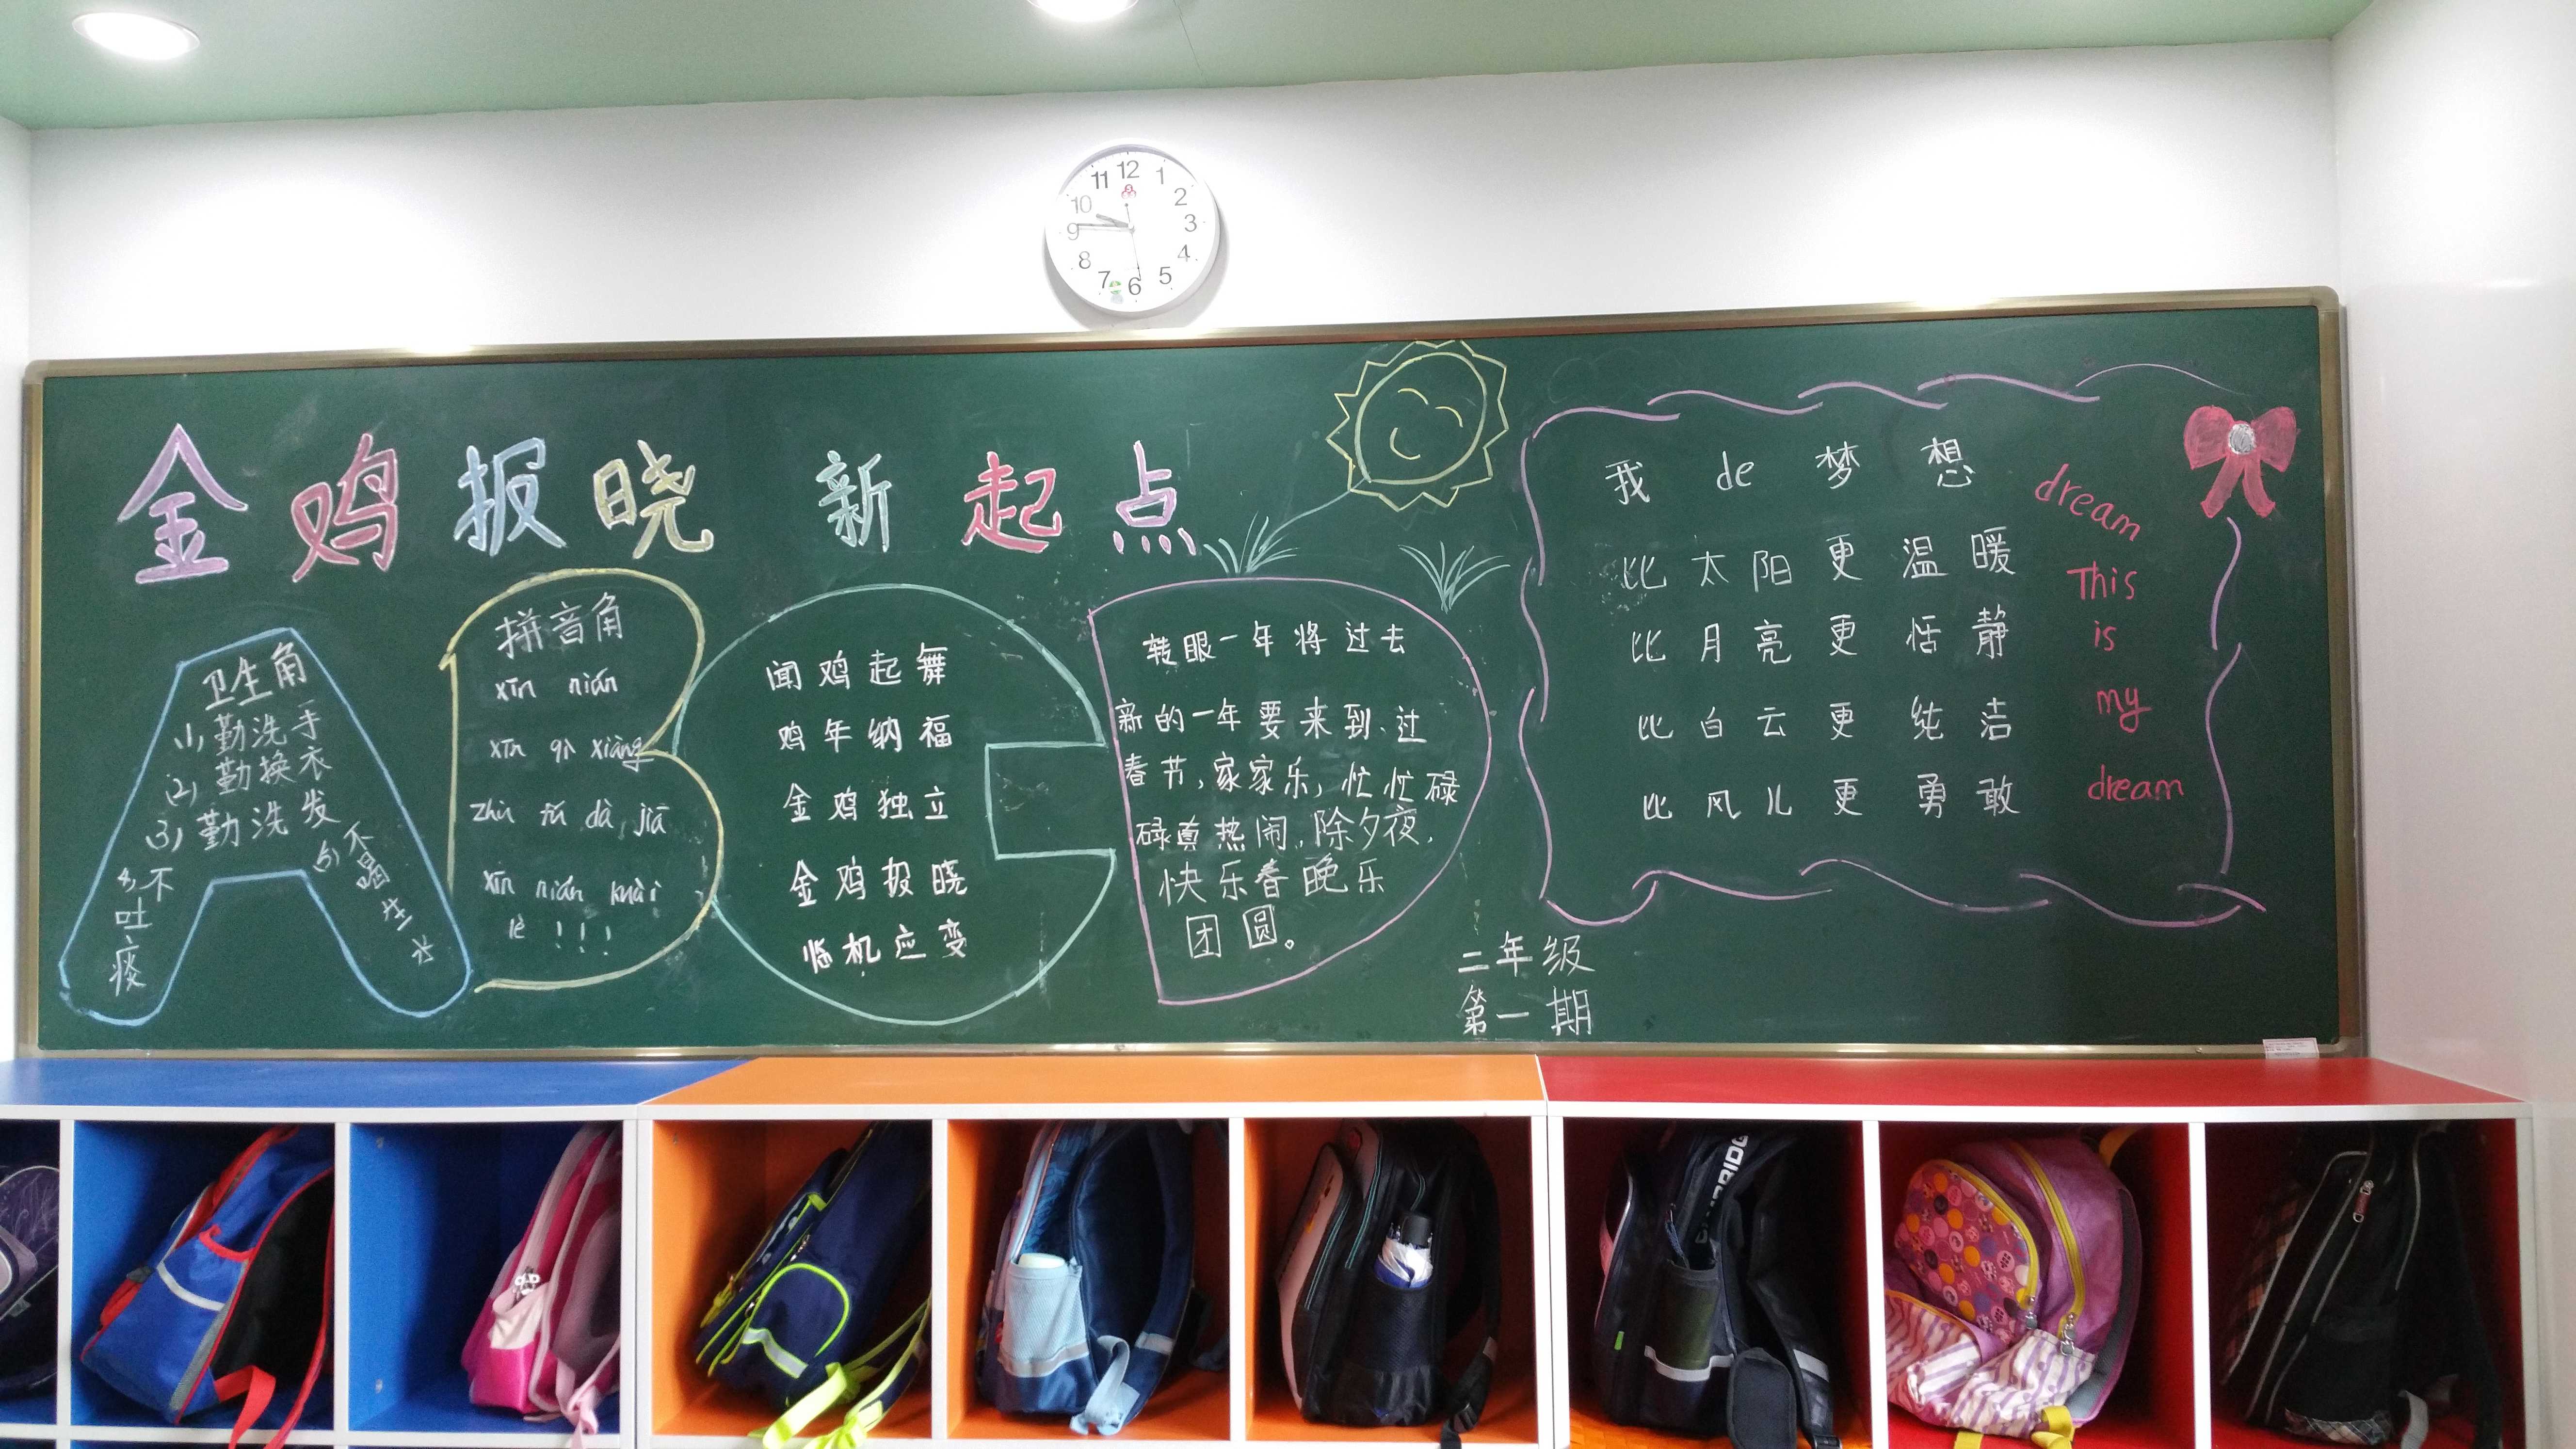 金鸡报晓 新起点
卫生角
(1)勤洗手
(2)勤换衣
(3)勤洗发
4,不吐痰
(5)不喝生水
拼音角
xīn nián
xīn qì xiàng
zhù fú dà jiā
xīn nián kuài
lè !!!
闻鸡起舞
鸡年纳福
金鸡独立
金鸡报晓
临机应变
转眼一年将过去
新的一年要来到、过
春节,家家乐,忙忙碌
碌真热闹,除夕夜,
快乐春晚乐
团圆。
二年级
第一期
我 de 梦想
比太阳更温暖
比月亮更恬静
比白云更纯洁
比风儿更勇敢
dream
This
is
my
dream
12
1
2
3
4
5
6
7
8
9
10
11